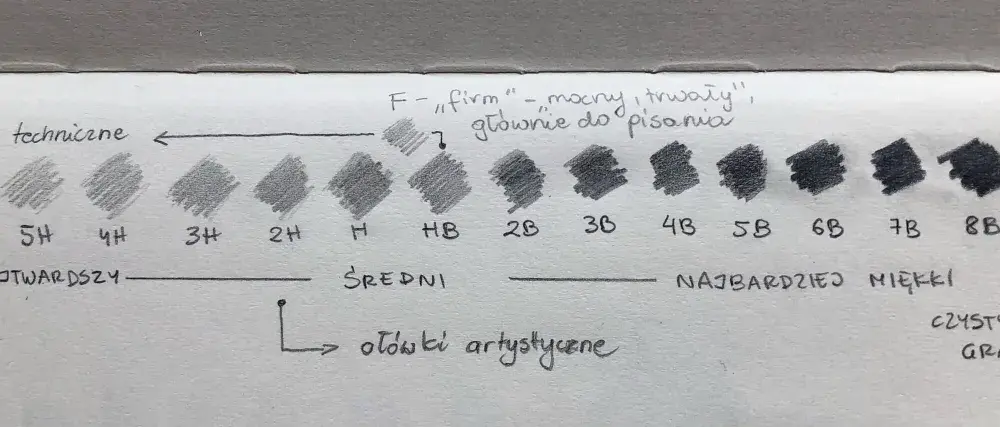 F – „firm" – „mocny, trwały",
głównie do pisania
techniczne
5H 4H 3H 2H H HB 2B 3B 4B 5B 6B 7B 8B
ŚREDNI NAJBARDZIEJ MIĘKKI
ołówki artystyczne